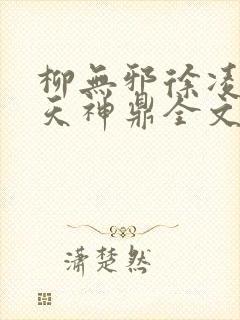 柳無邪徐凌
天神鼎全文
瀟楚然